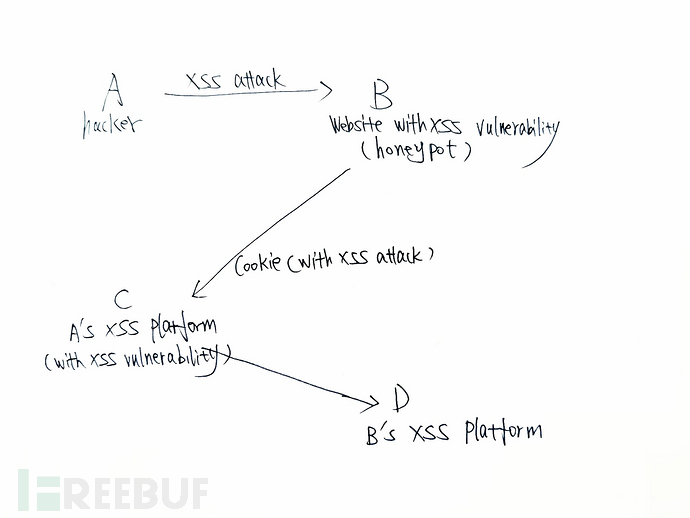 A
hacker
XSS attack
B
Website with XSS vulnerability
(honeypot)
Cookie (with XSS attack)
C
A's XSS platform
(with XSS vulnerability)
D
B's XSS Platform
FREEBUF